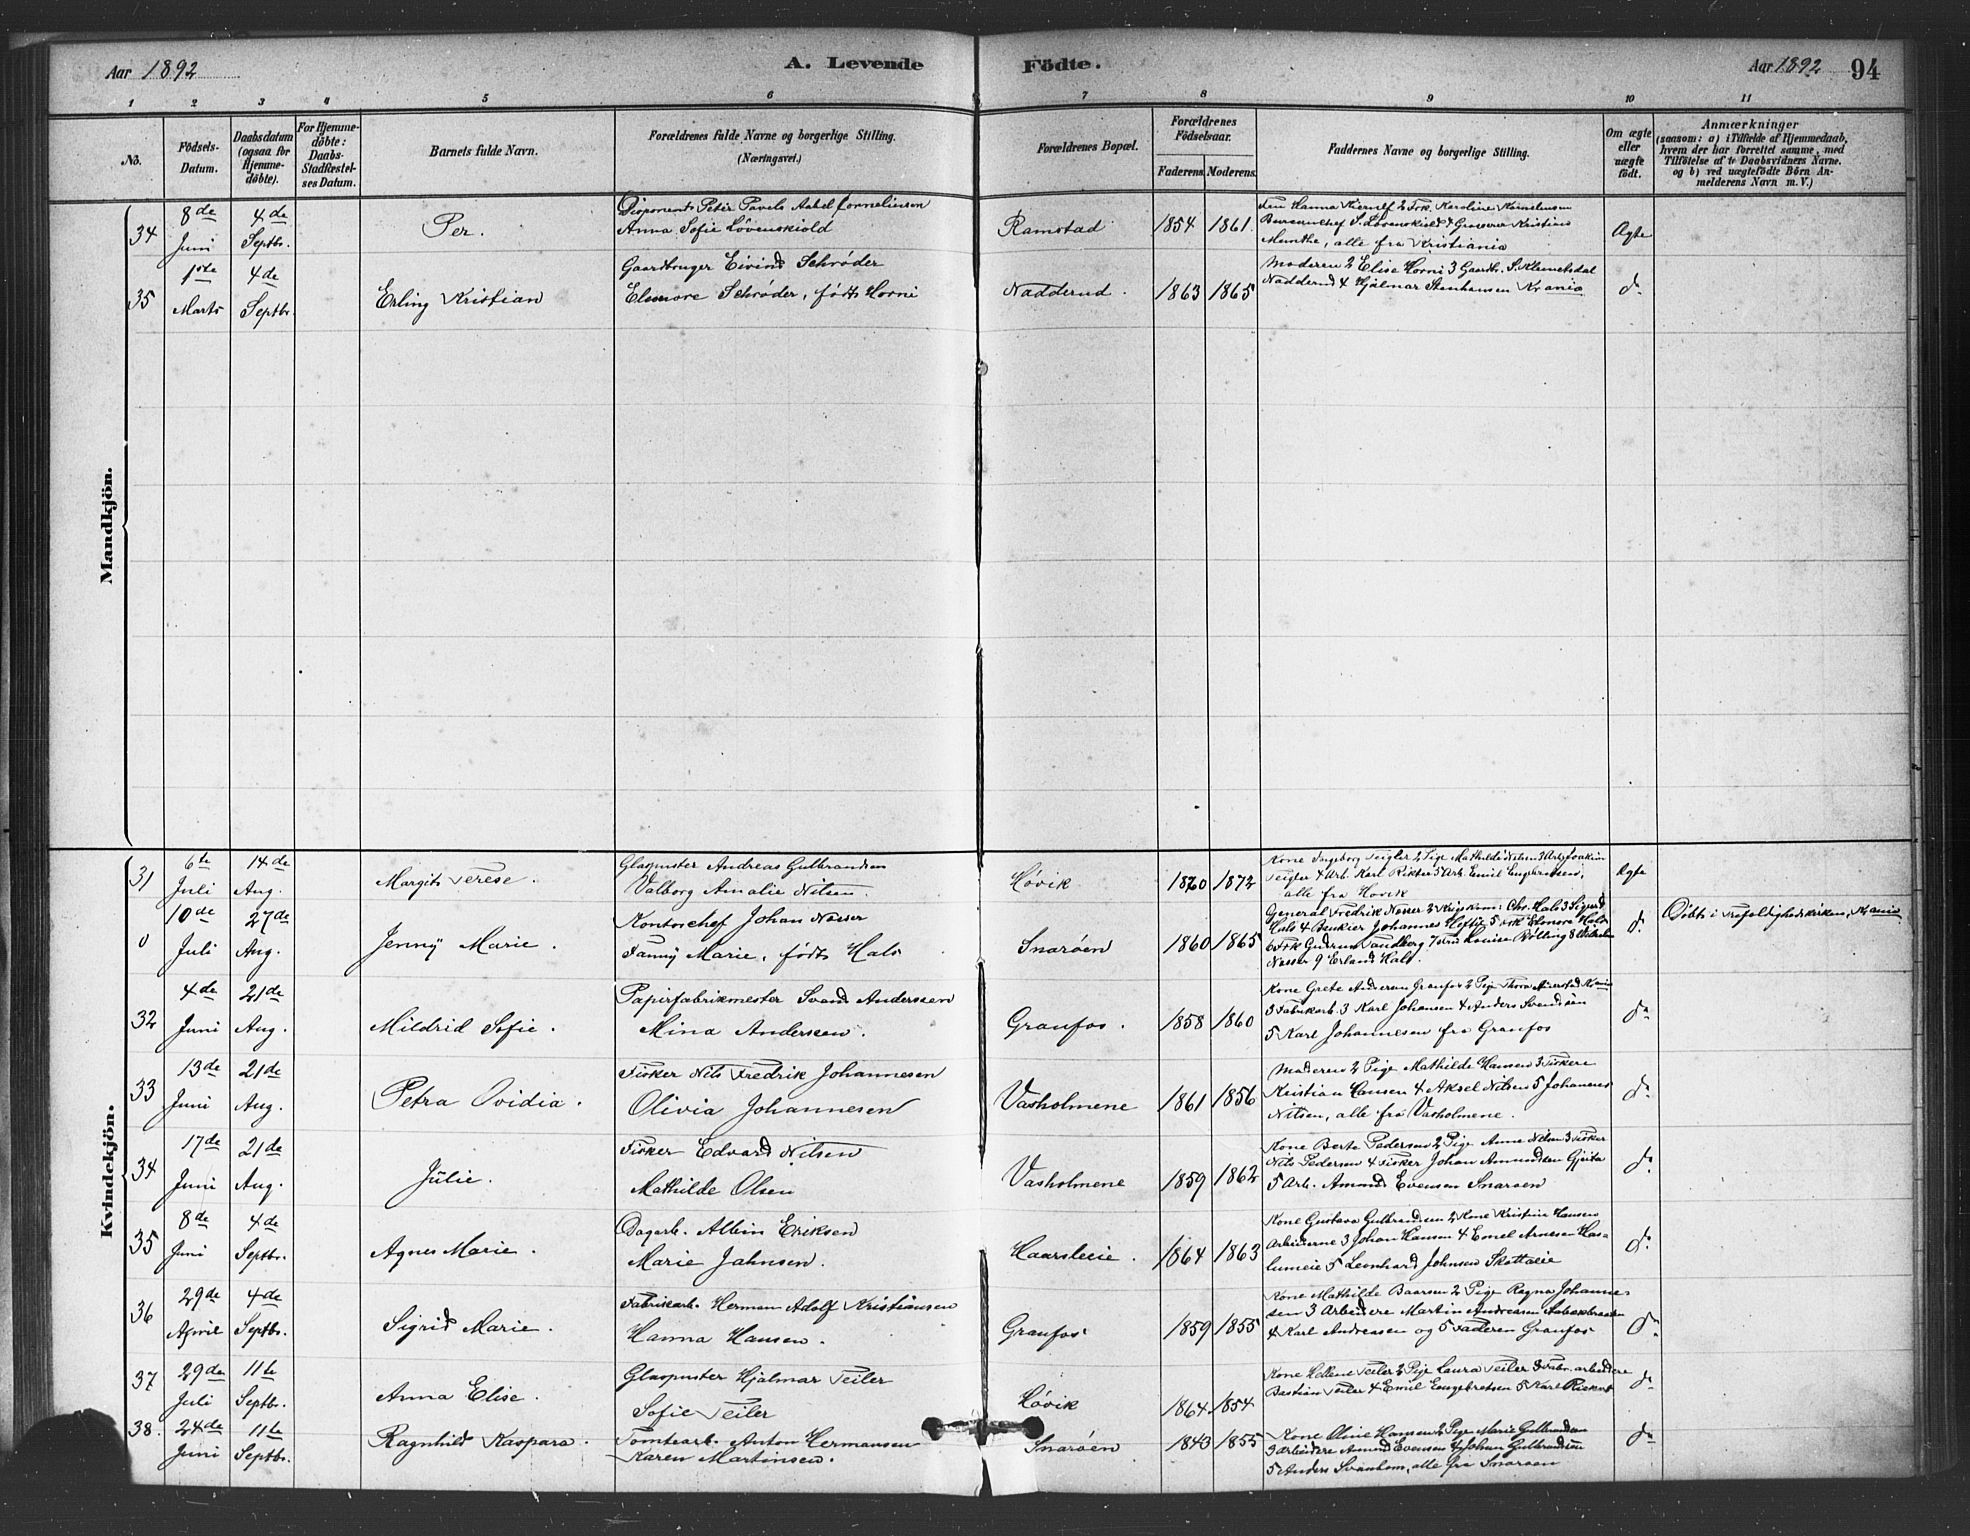 Aar 1892
A. Levende Födte.
Aar 1892 94
1 2 3 4 5 6 7 8 9 10 11
No.
Födsels-Datum.
Daabsdatum (ogsaa for Hjemme-döbte).
For Hjemme-döbte: Daabs-Stadfæstel-ses Datum.
Barnets fulde Navn.
Forældrenes fulde Navne og borgerlige Stilling.
(Næringsvei.)
Forældrenes Bopæl.
Forældrenes Födselsaar.
Faderens. Moderens.
Faddernes Navne og borgerlige Stilling.
Om ægte eller uægte födt.
Anmærkninger
(saasom: a) i Tilfælde af Hjemmedaab, hvem der har forrettet samme, med Tilföielse af to Daabsvidners Navne. og b) ved uægtefödte Börn An-melderens Navn m. V.)
Mandkjön.
34 8de Juni 4de Septbr. Per.
Disponent Peter Pavels Aabel Cornelinsen
Anna Sofie Lövenskiold
Ramstad 1854 1861
Hanna Kierulf 2 Frk. Karoline
S. Lövenskiold 4 Grosserer Kristian
Munthe, alle fra Kristiania
Ægte
35 1ste Marts 4de Septbr. Erling Kristian
Gaardbruger Eivind Schrøder
Elenore Schrøder, født Horni
Nadderud. 1863 1865
Moderen 2 Elise Horni 3 Gaardb. S. Klemetsdal
Nadderud 4 Hjalmar Stenhansen Krania
do
Kvindekjön.
31 6te Juli 14de Aug. Margit Terese.
Glaspuster Andreas Gulbrandsen
Valborg Amalie Nilsen
Høvik 1870 1872
Kone Ingeborg Teigler 2 Pige Mathilde Nilsen 3 Arb. Joakim
Teigler 4 Arb. Karl Rikter 5 Arb. Emil Engebretsen,
alle fra Høvik
Ægte
0 10de Juli 27de Aug. Jenny Marie.
Kontorchef Johan Næser
Fanny Marie, født Hals
Snarøen 1860 1865
General Fredrik Næser 2 Chr. Hals 3 Sigurd
Hals 4 Bankier Johannes Heftye 5 Frk Elenore Hals
6 Frk Gudrun Sandberg 7 Louise Rølling 8
Næser 9 Erland Hals.
do
Døbt i Trefoldighedskirken, Krania
32 4de Juni 21de Aug. Mildrid Sofie.
Papirfabrikmester Svend Anderssen
Mina Anderssen.
Granfos. 1858 1860
Kone Grete Andersen Granfos 2 Pige Thora
3 Fabrikarb. 3 Karl Johansen 4 Anders Svendsen
5 Karl Johannesen fra Granfos
do
33 13de Juni 21de Aug. Petra Ovidia.
Fisker Nils Fredrik Johannesen
Olivia Johannesen
Vasholmene 1861 1856
Moderen 2 Pige Mathilde Hansen 3 Fiskere
Kristian Hansen 4 Aksel Nilsen 5 Johannes
Nilsen, alle fra Vasholmene.
do
34 17de Juni 21de Aug. Julie.
Fisker Edvard Nilsen
Mathilde Olsen
Vasholmene 1859 1862
Kone Berte Pedersen 2 Pige Anne Nilsen 3 Fisker
Nils Pedersen 4 Fisker Johan Amundsen Gjeita
5 Arb. Amund Evensen Snarøen
do
35 8de Juni 4de Septbr. Agnes Marie.
Dagarb. Albin Eriksen
Marie Jahnsen.
Haarsleie. 1864 1863
Kone Gustava Gulbrandsen 2 Kone Kristine Hansen
Arbeiderne 3 Johan Hansen 4 Emil Arnesen Has-
lumeie 5 Leonhard Johnsen Skottaeie
do
36 29de April 4de Septbr. Sigrid Marie.
Fabrikarb. Herman Adolf Kristiansen
Hanna Hansen.
Granfos 1859 1855
Kone Mathilde Baarsen 2 Pige Ragna Johanne-
sen 3 Arbeidere Martin Andreasen
4 Karl Andreasen og 5 Faderen Granfos
do
37 29de Juli 11te Septbr. Anna Elise.
Glaspuster Hjalmar Teiler
Sofie Teiler
Høvik 1864 1854
Kone Hellene Teiler 2 Pige Laura Teiler 3 Fabr. arbeidere
Bastian Teiler 4 Emil Engebretsen 5 Karl Riekert
do
38. 24de Juni 11te Septbr. Ragnhild Kaspara.
Tomtearb. Anton Hermansen
Karen Martinsen.
Snarøen 1843 1855
Kone Oline Hansen 2 Pige Marie Gulbrandsen
3 Arbeidere Amund Evensen 4 Johan Gulbrandsen
5 Anders Svenhom, alle fra Snarøen
do